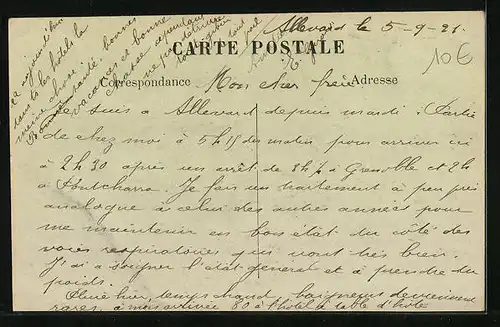 Allevard le 5-9-21
10€
CARTE POSTALE
Correspondance
Adresse
Mon cher frère
Je suis à Allevard depuis mardi. Partie
de chez moi à 5h15 du matin pour arriver ici
à 2h30 après un arrêt de à Grenoble et 2h
à Pontchara. Je fais un traitement à peu près
analogue à celui des autres années pour
me maintenir en bon état du côté des
voies respiratoires qui vont très bien.
J'ai à soigner l'état général et à prendre du
poids.
Pluie hier, temps chaud, baigneurs deviennent
rares, à mon arrivée 80 à l'hôtel à table d'hôte
aujourd'hui
dans tous les hôtels la
même chose.
Bonne santé, bonnes
vacances et bonne
chasse cependant
ne pas détruire
tout